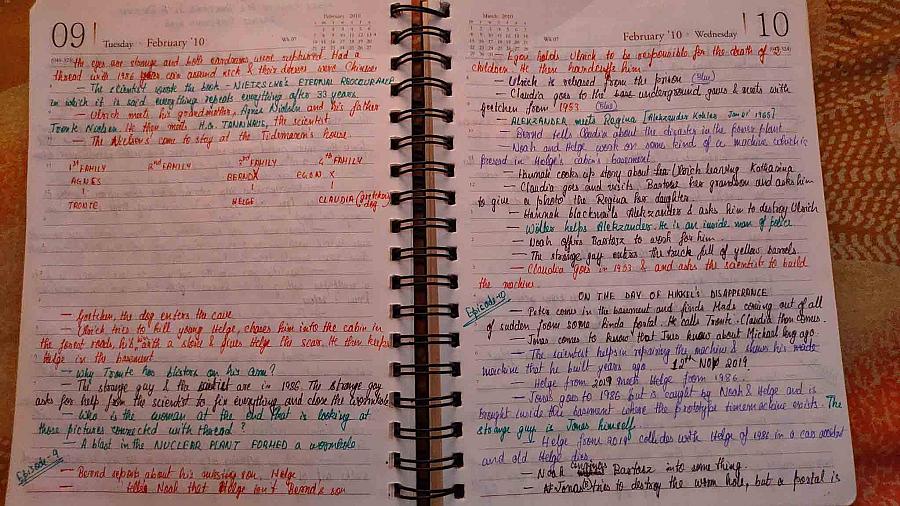 09
Tuesday · February '10
February 2010
Wk 07
the eyes are strange and both eardrums were ruptured. Had a
thread with 1986 coin around neck & their dresses were Chinese
— The scientist wrote the book - NIETZSCHE'S ETERNAL RECCOURANCE
in which it is said everything repeats everything after 33 years.
— Ulrich meets his grandmother, Agnes Nielsen and his father
Tronte Nielsen. He then meets H.G. TANNHAUS, the scientist.
— The Nielsen's came to stay at the Tiedemann's house.
1ST FAMILY 2ND FAMILY 3RD FAMILY 4TH FAMILY
AGNES BERND X EGON X
TRONTE HELGE CLAUDIA (Gretchen) dog
— Gretchen, the dog enters the cave
— Ulrich tries to kill young Helge, chases him into the cabin in
the forest roads, hits with a stone & gives Helge the scar. He then keeps
Helge in the basement
— Why Tronte has blisters on his arm?
— The strange guy & the scientist are in 1986. The strange guy
asks for help from the scientist to fix everything and close the wormhole
— Who is the woman at the end that is looking at
those pictures connected with thread?
— A blast in the NUCLEAR PLANT FORMED a wormhole
Episode-9
— Bernd reports about his missing son, Helge
— Noah that Helge isn't Bernd's son
March 2010
Wk 07
February '10 · Wednesday
10
— Egon holds Ulrich to be responsible for the death of 2
children. He then handcuffs him.
— Ulrich is released from the prison (Blue)
— Claudia goes to the underground caves & meets with
Gretchen from 1953 (Blue)
— ALEKZANDER meets Regina [Alekzander Kohler Jan 01 1965]
— Bernd tells Claudia about the disaster in the power plant
— Noah and Helge work on some kind of a machine which is
present in Helge's cabin's basement.
— Hannah cooks up story about Ulrich leaving Katharina
— Claudia goes and visits Bartosz her grandson and asks him
to give a photo the Regina her daughter.
— Hannah blackmails Alekzander & asks him to destroy Ulrich
— Woller helps Alekzander. He is an inside man of police
— Noah offers Bartosz to work for him.
— The strange guy enters the truck full of yellow barrels
— Claudia goes in 1953 & and asks the scientist to build
the machine.
Episode-10
ON THE DAY OF MIKKEL'S DISAPPERANCE
— Peter comes in the basement and finds Mads coming out of all
of sudden from some kinda portal. He calls Tronte. Claudia then comes.
— Jonas comes to know that Ines know about Michael long ago.
— The scientist helps in repairing the machine & shows his made
machine that he built years ago 12th NOV 2019
— Helge from 2019 meets Helge from 1986.
— Jonas goes to 1986 but is caught by Noah & Helge and is
brought inside the basement where the prototype timemachine exists. The
strange guy is Jonas himself.
— Helge from 2019 collides with Helge of 1986 in a car accident
and old Helge dies.
— Noah convinces Bartosz into something.
— Jonas (s) tries to destroy the worm hole, but a portal is